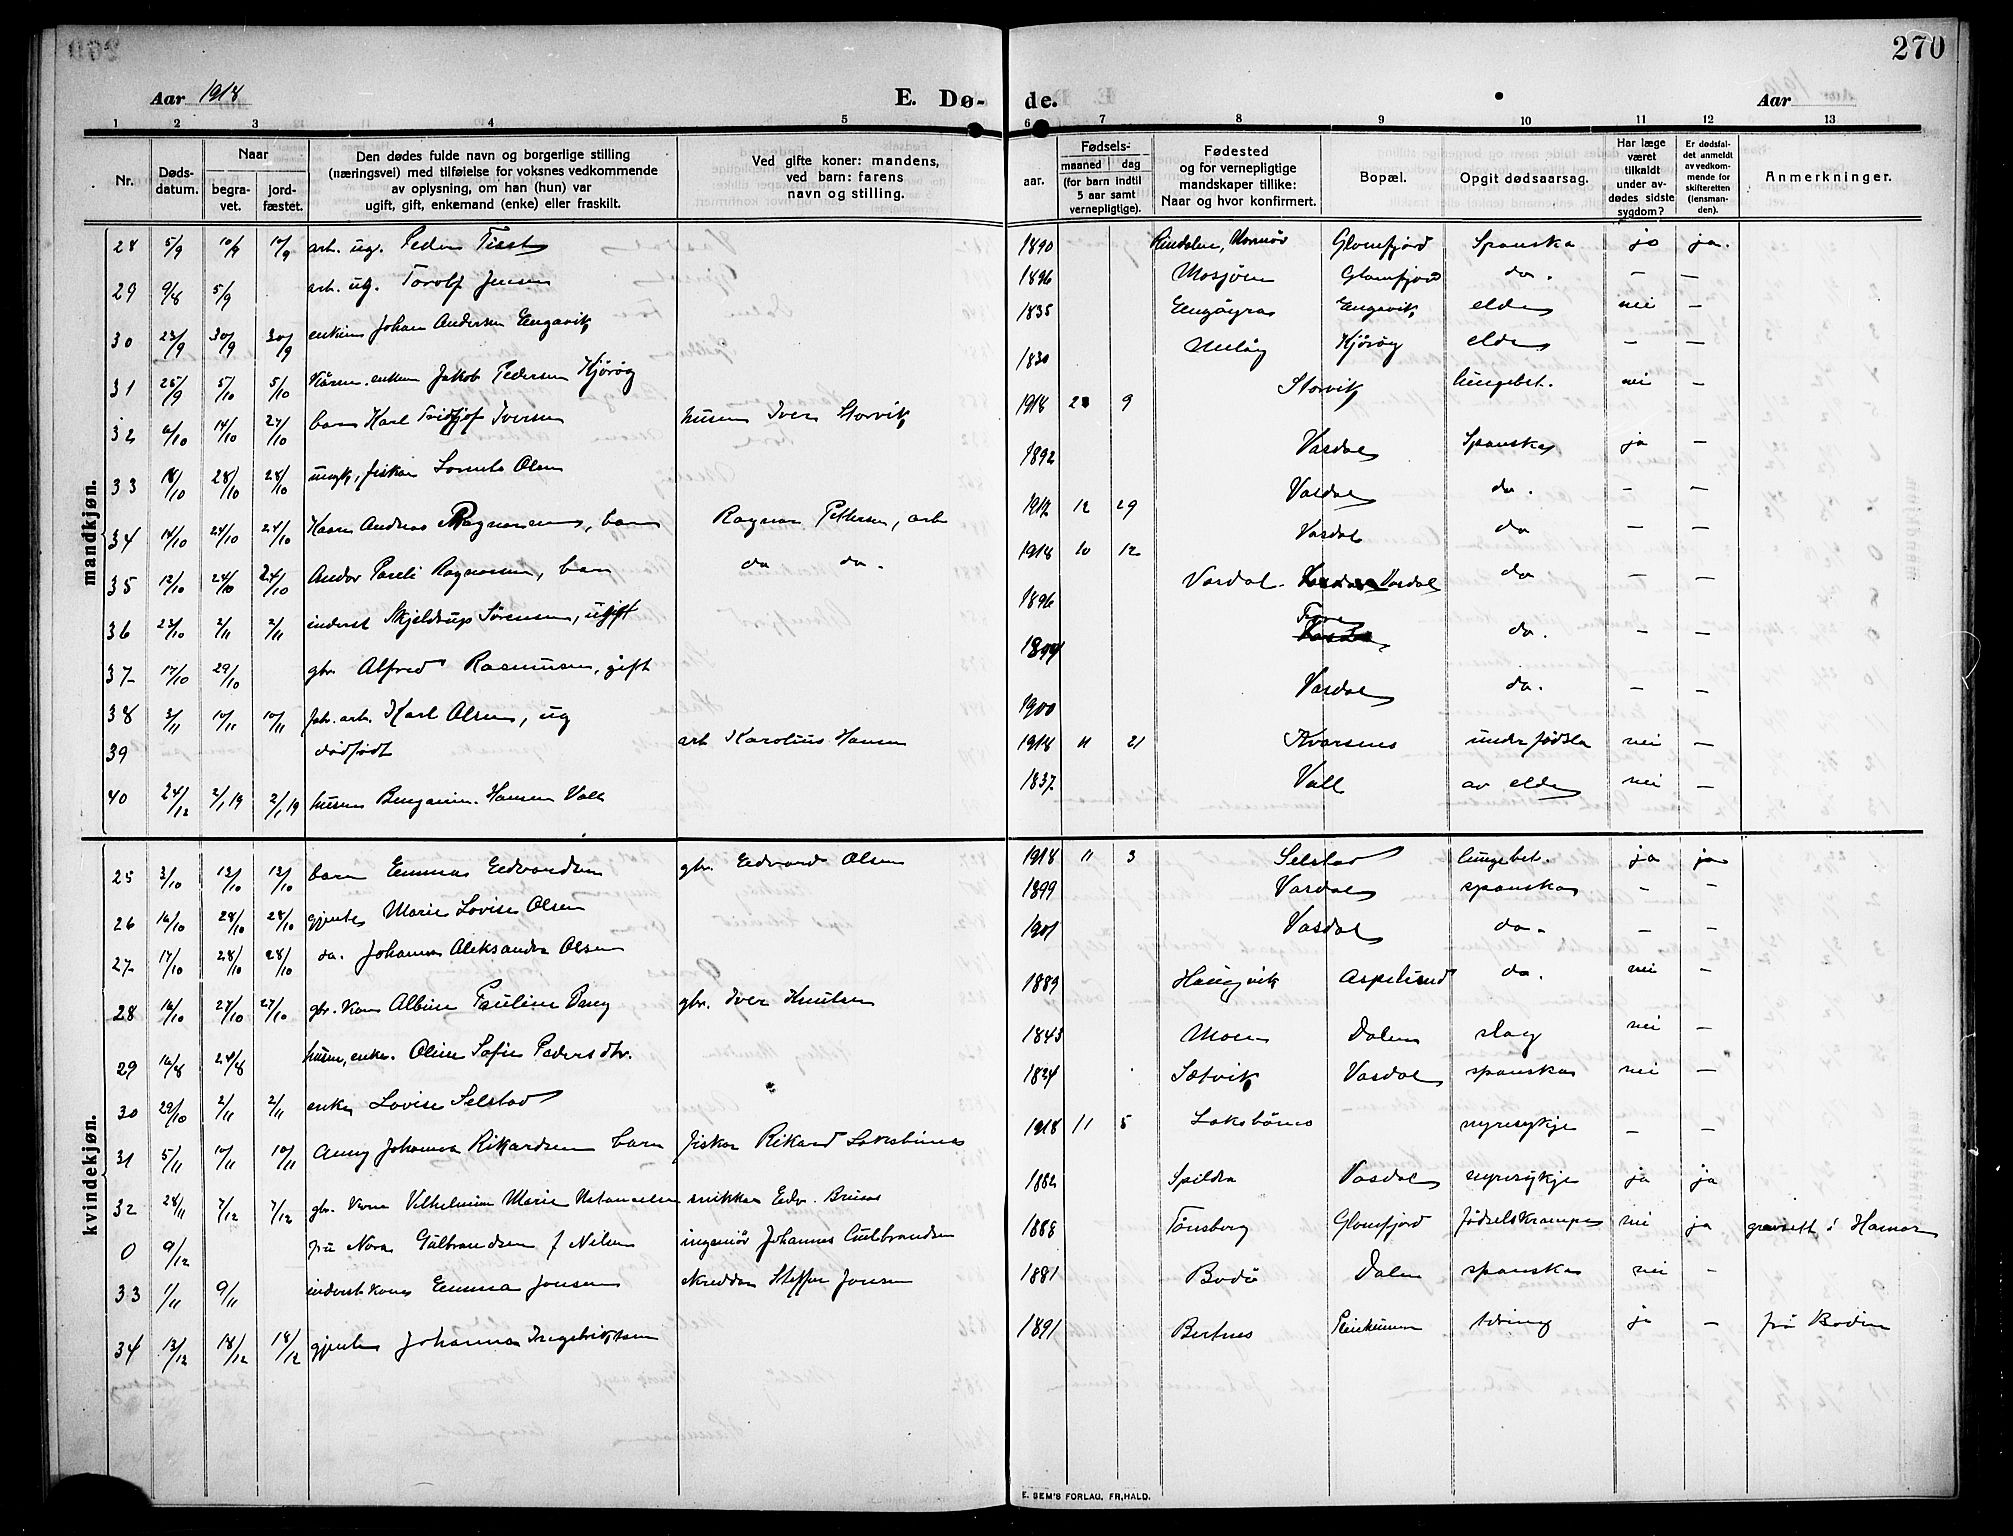 270
Aar 1918
E. Dø- de.
Aar
1 2 3 4 5 6 7 8 9 10 11 12 13
Nr.
Døds-
datum.
Naar
begra-
vet.
jord-
fæstet.
Den dødes fulde navn og borgerlige stilling
(næringsvei) med tilføielse for voksnes vedkommende
av oplysning, om han (hun) var
ugift, gift, enkemand (enke) eller fraskilt.
Ved gifte koner: mandens,
ved barn: farens
navn og stilling.
aar.
Fødsels-
maaned dag
(for barn indtil
5 aar samt
vernepligtige).
Fødested
og for vernepligtige
mandskaper tillike:
Naar og hvor konfirmert.
Bopæl.
Opgit dødsaarsag.
Har læge
været
tilkaldt
under av-
dødes sidste
sygdom?
Er dødsfal-
det anmeldt
av vedkom-
mende for
skifteretten
(lensman-
den).
Anmerkninger.
mandkjøn.
28 5/9 10/9 10/9 arb. ug. Peder 1890 Glomfjord Spanska ja ja.
29 9/8 5/9 arb. ug. Torolf Jensen 1896 Mosjøen Glomfjord do. — —
30 23/9 30/9 30/9 Johan Andersen Engavik 1835 Engavik elde nei —
31 25/9 5/10 5/10 Jakob Pedersen Kjørøg 1830 Kjørøg elde — —
32 6/10 14/10 27/10 barn Karl Iversen husm Iver Storvik 1918 9 Storvik lungebet. nei —
33 18/10 28/10 28/10 ungk, fisker Olsen 1892 Vasdal Spanska ja —
34 14/10 24/10 24/10 Andreas Ragnarsen, barn Ragnar Pettersen, arb 1917 12 29 Vasdal do. — —
35 12/10 24/10 24/10 Andor Ragnarsen, barn do do. 1918 10 12 Vasdal do — —
36 23/10 2/11 2/11 inderst Skjeldrup Sørensen, ugift 1896 Vasdal. Vasdal do — —
37 17/10 29/10 gbr Alfred Rasmussen, gift do. — —
38 3/11 10/11 10/11 arb. Karl Olsen, ug 1900 Vasdal do. — —
39 dødfødt arb Karolius Hansen 1918 11 21 Kvarsnes under fødsla nei —
40 24/12 2/1 19 2/1 19 husm Hansen Vall 1837 Vall av elde nei —
kvindekjøn.
25 3/10 13/10 13/10 barn Emma Edvardsen gbr. Edvard Olsen 1918 11 3 Selstad lungebet. ja ja
26 16/10 28/10 28/10 gjente Marie Lovise Olsen 1899 Vasdal spanska — —
27 17/10 28/10 28/10 do. Johanna Aleksandra Olsen 1901 Vasdal do. — —
28 16/10 27/10 27/10 gbr. kone Albine Pauline gbr. Iver Knutsen 1889 Haugvik Aspelund do. nei —
29 16/8 24/8 husm, enke. Oline Sofie Pedersdtr. 1843 Moen Dalen slag nei —
30 29/10 2/11 2/11 enke Lovise Selstad 1834 Sætvik Vasdal spanska nei —
31 5/11 10/11 10/11 Anny Johanna Rikardsen barn fisker Rikard 1918 11 5 nyresykje — —
32 28/11 7/12 7/12 gbr. Vilhelmine Marie snikkar Edv. 1882 Spilda Vasdal nyresykje ja ja
0 9/12 fru Nora Gulbrandsen f Nilsen ingeniør Johannes Gulbrandsen 1888 Tønsberg Glomfjord fødselskrampe nei ja gravsett i Hamar
33 1/11 9/11 inderst kone Emma Jonsen skredder Steffen Jonsen 1881 Bodø Dalen spanska nei —
34 13/12 18/12 18/12 gjente Johanna Ingebriktsen 1891 Bertnes tæring ja — frå Bodin
E. SEM'S FORLAG, FR,HALD.